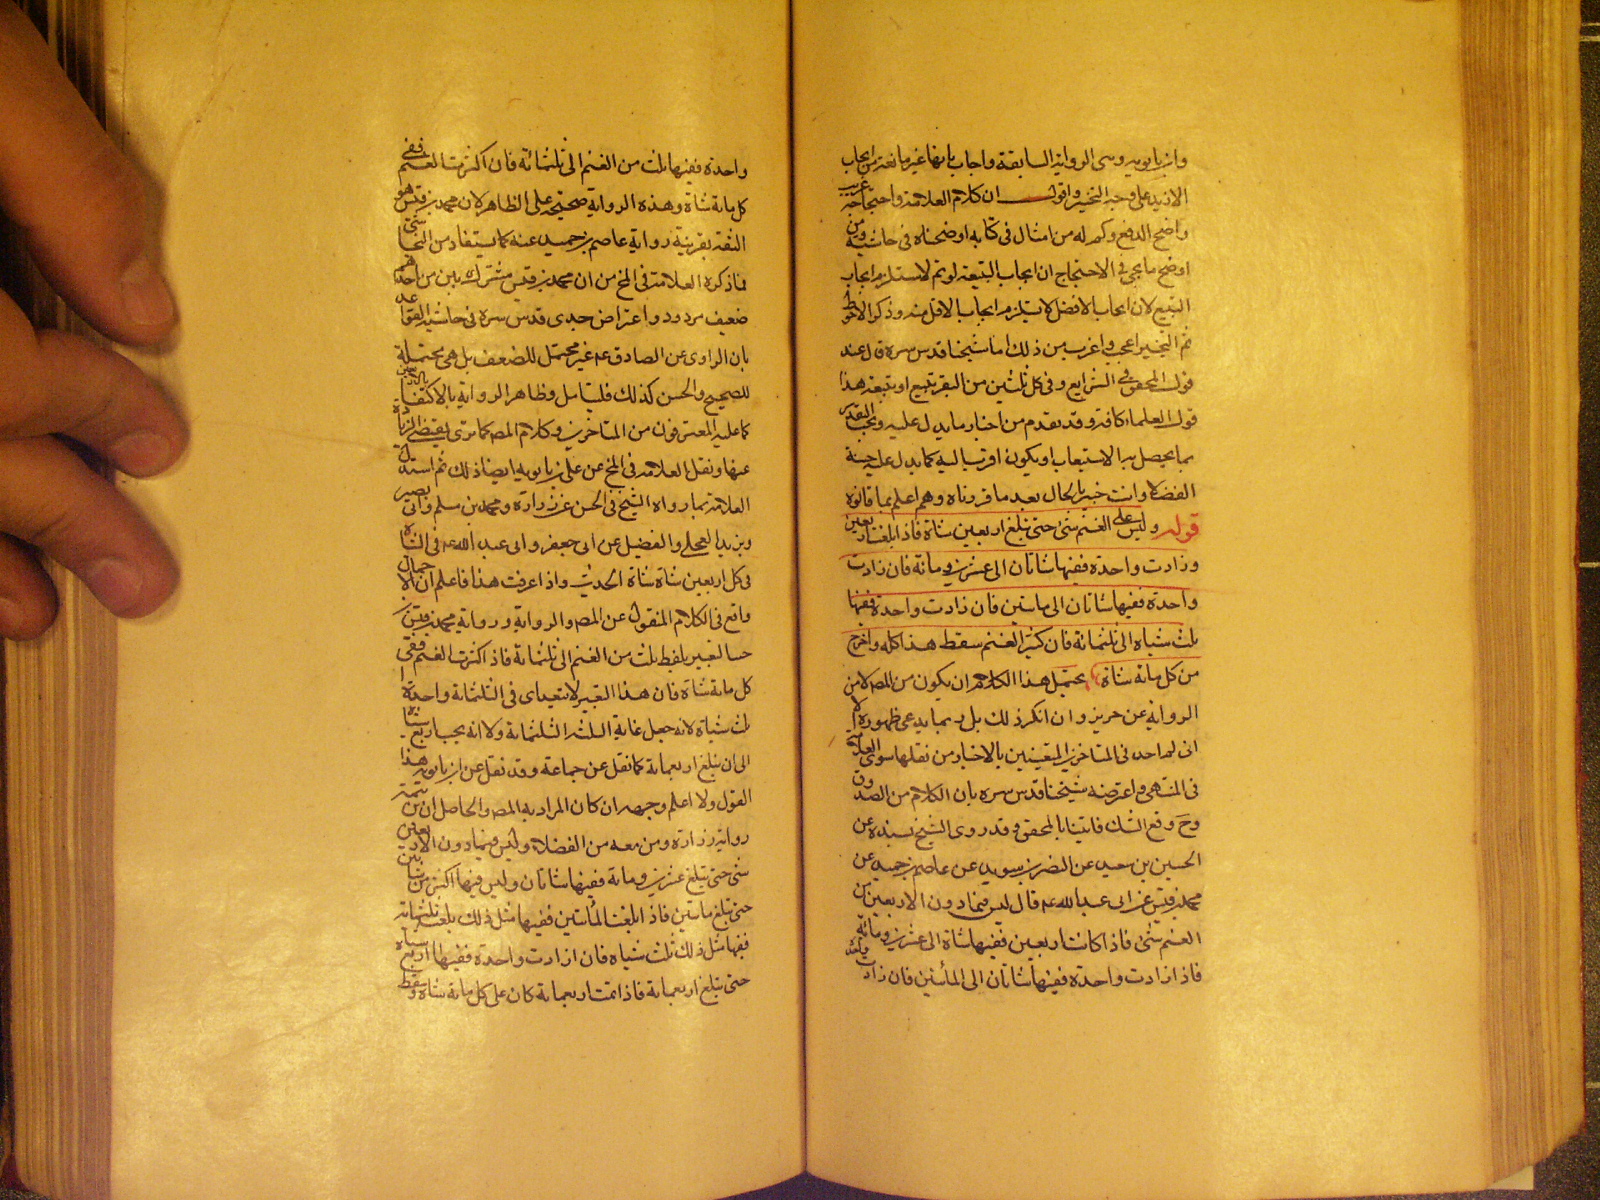 وابن بابويه وسى الرواية السابقة واجاب بانها غير مانعة من ايجاب
الازيد على وجه التخيير واقول ان كلام العلامة واحتجاجه غريب
واضح الدفع وكم له من امثال في كتابه اوضحناه في حاشيته ومن
اوضح ما يجئ في الاحتجاج ان ايجاب التبيعة لو تم لاستلزم ايجاب
التبيع لان ايجاب الافضل لا يستلزم ايجاب الاقل منه وذكر الاحوط
ثم التخيير اعجب واغرب من ذلك اما شيخنا قدس سره قال عند
قول المحقق في الشرايع وفي كل ثلثين من البقر تبيع او تبيعة هذا
قول العلماء كافة وقد تقدم من اخبار ما يدل عليه ويجب التقدير
بما يحصل به الاستيعاب او يكون اقرب اليه كما يدل عليه حسنة
الفضلا وانت خبير بالحال بعد ما قررناه وهم اعلم بما قالوه
قوله وليس على الغنم شئ حتى تبلغ اربعين شاة فاذا بلغت اربعين
وزادت واحدة ففيها شاتان الى عشرين ومائة فان زادت
واحدة ففيها شاتان الى ماتين فان زادت واحدة ففيها
ثلث شياه الى ثلثمائة فان كثر الغنم سقط هذا كله واخرج
من كل مائة شاة يحتمل هذا الكلام ان يكون من المصـ لا من
الرواية عن حريز وان انكر ذلك بل ربما يدعى ظهوره الا
انى لم اجد في المتاخرين المعتنين بالاخبار من نقلها سوى العلامة
في المنتهى واعترضه شيخنا قدس سره بان الكلام من الصدوق
وح وقع الشك فاتينا بالمحقق وقد روى الشيخ بسنده عن
الحسين بن سعيد عن النضر بن سويد عن عاصم بن حميد عن
محمد بن قيس عن ابى عبد الله ع قال ليس فيما دون الاربعين من
الغنم شئ فاذا كانت اربعين ففيها شاة الى عشرين ومائة
فاذا زادت واحدة ففيها شاتان الى المأتين فان زادت
واحدة ففيها ثلث من الغنم الى ثلثمائة فان اكثرت الغنم ففي
كل مائة شاة وهذه الرواية صحيحة على الظاهر لان محمد بن قيس هو
الثقة بقرينة رواية عاصم بن حميد عنه كما يستفاد من النجاشى
فما ذكره العلامة في المخ من ان محمد بن قيس مشترك بين من احدهم
ضعيف مردود واعتراض جدى قدس سره في حاشية القواعد
بان الراوى عن الصادق ع غير محتمل للضعف بل هي محتملة
للصحيح والحسن كذلك فليتامل وظاهر الرواية بالاكتفا بالاربعين
كما عليه المعترفون من المتاخرين وكلام المصـ كما ترى يقتضى الزيادة
عنها ونقل العلامة في المخ عن على بن بابويه ايضا ذلك ثم استدل
العلامة بما رواه الشيخ في الحسن عن زرارة ومحمد بن مسلم وابى بصير
وبريد العجلى والفضيل عن ابى جعفر وابى عبد الله ع في الشاة
في كل اربعين شاة شاة الحديث واذا عرفت هذا فاعلم ان الاجمال
واقع في الكلام المنقول عن المصـ والرواية ورواية محمد بن قيس
التعبير بلفظ ثلث من الغنم الى ثلثمائة فاذا كثرت الغنم ففى
كل مائة شاة فان هذا التعبير لا يتعدى في الثلثمائة واحدة
ثلث شياه لانه جعل غاية الثلث الثلثمائة ولا انه يجب اربع شياه
الى ان تبلغ اربعمائة كما نقل عن جماعة وقد نقل عن ابن بابويه هذا
القول ولا اعلم وجهه ان كان المراد به المصـ والحاصل ان من تتمة
رواية زرارة ومن معه من الفضلاء وليس فيما دون الاربعين
شئ حتى تبلغ عشرين ومائة ففيها شاتان وليس فيها اكثر من شاتين
حتى تبلغ ماتين فاذا بلغت المأتين ففيها مثل ذلك بلغت ثلثمائة
ففيها مثل ذلك ثلث شياه فان ازادت واحدة ففيها اربع شياه
حتى تبلغ اربعمائة فاذا تمت اربعمائة كان على كل مائة شاة وسقط